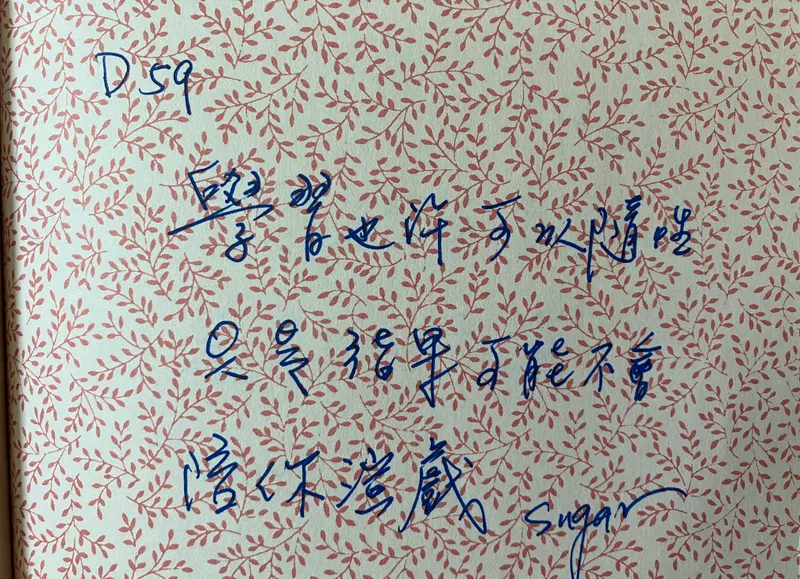 D59
學習也許可以隨性
只是結果可能不會
陪你演戲
sugar